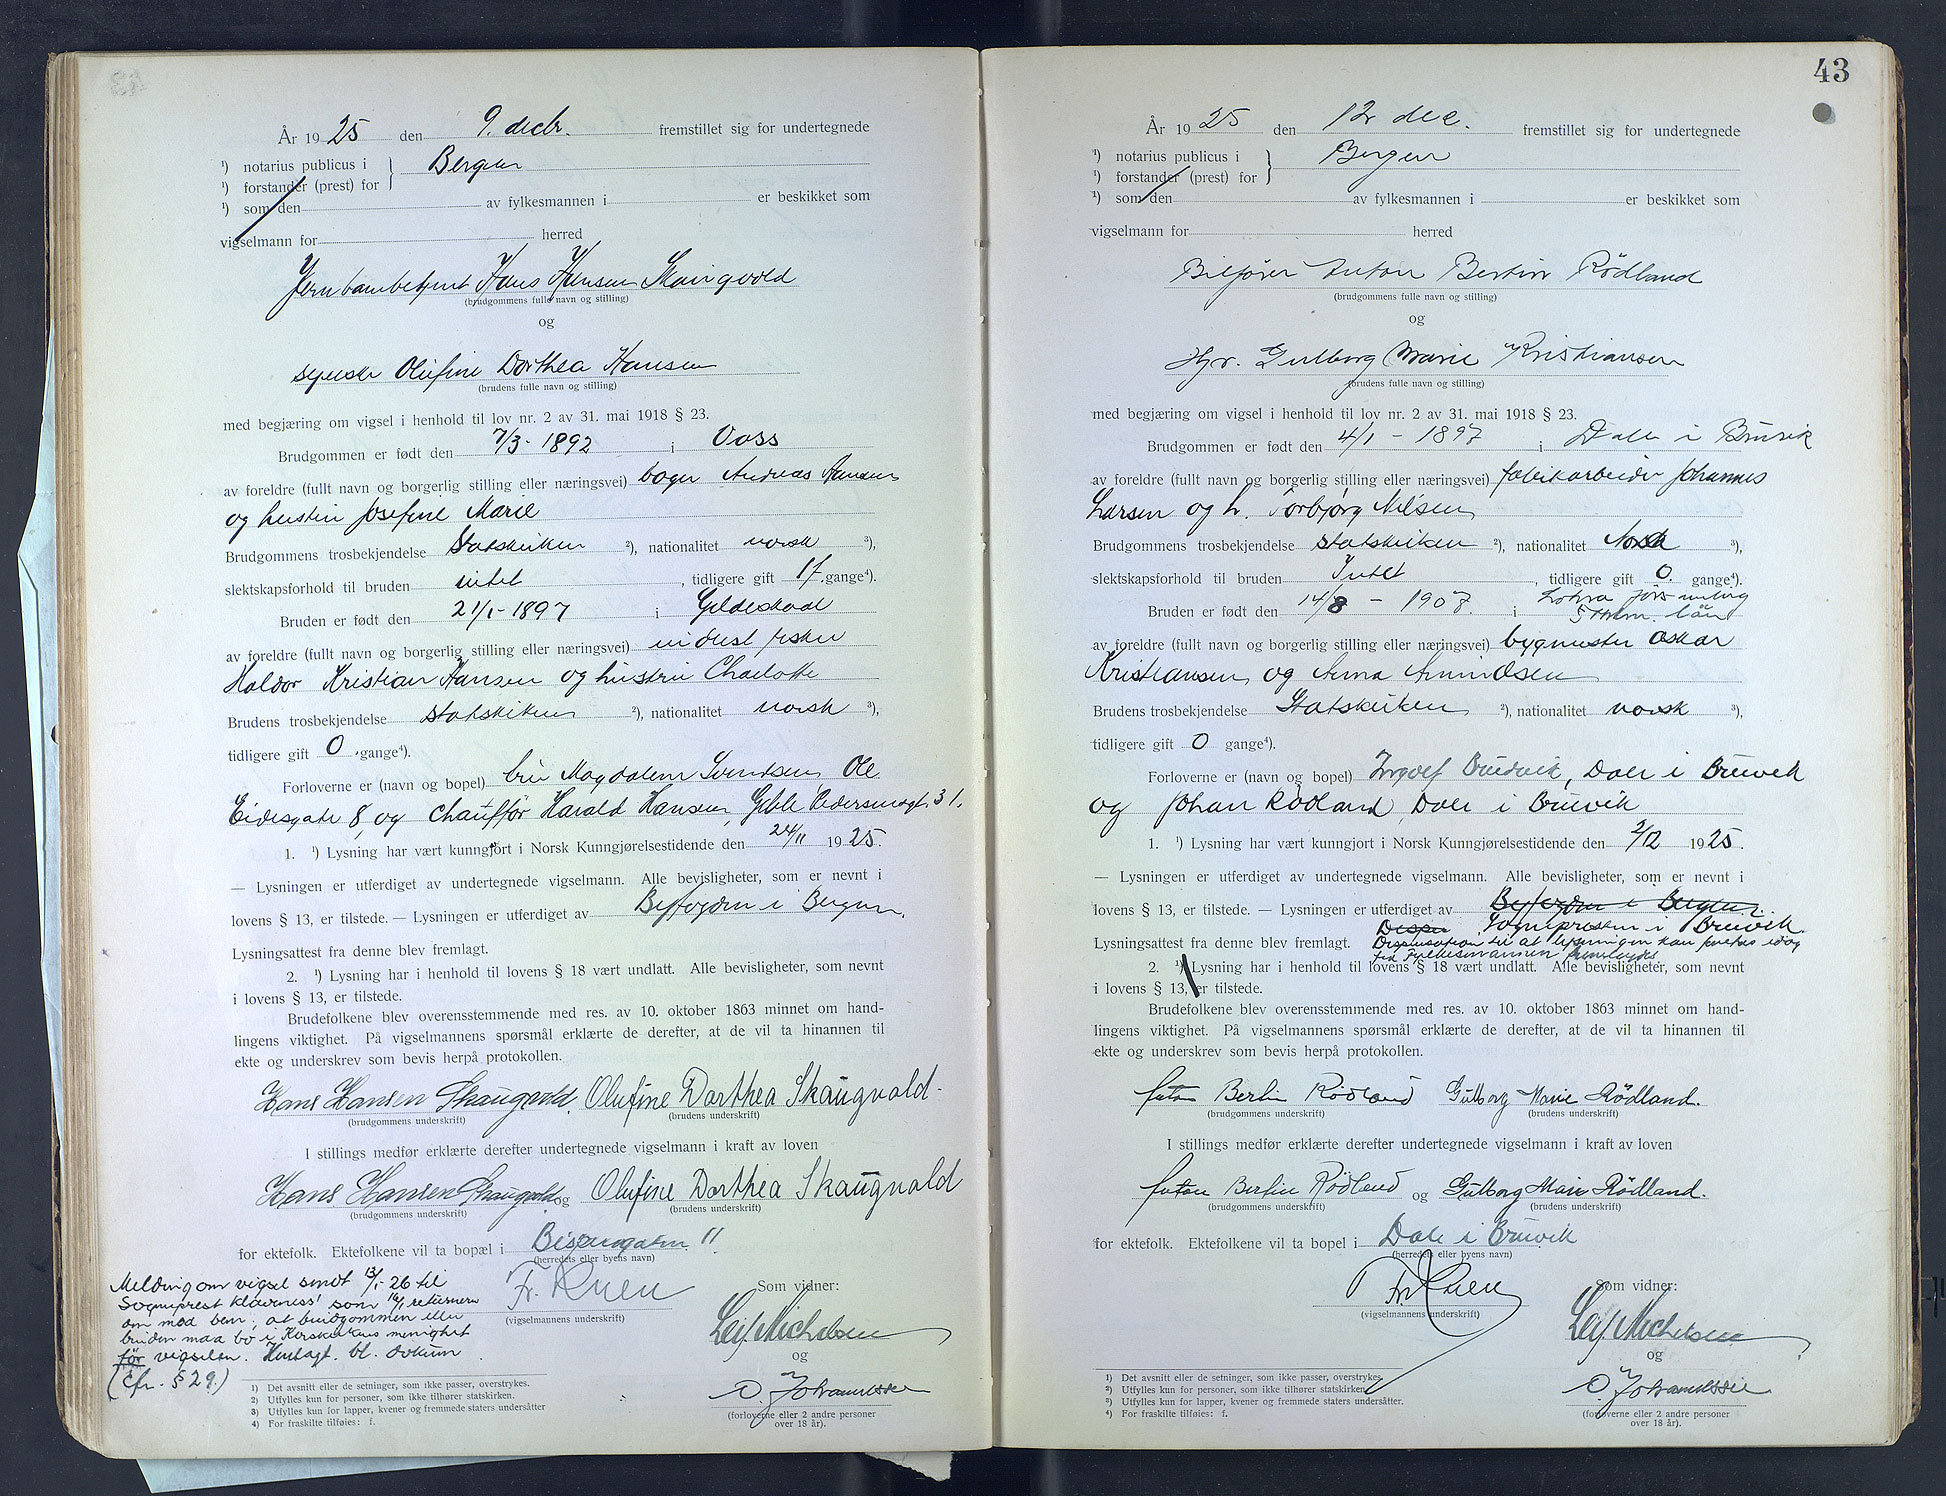 År 1925 den 9. decbr. fremstillet sig for undertegnede
¹) notarius publicus i } Bergen
¹) forstander (prest) for
¹) som den av fylkesmannen i er beskikket som
vigselmann for herred
Jernbanebetjent Hans Hansen Skaugvold
(brudgommens fulle navn og stilling)
og
syerske Olufine Dorthea Hansen
(brudens fulle navn og stilling)
med begjæring om vigsel i henhold til lov nr. 2 av 31. mai 1918 § 23.
Brudgommen er født den 7/3 - 1892 i Voss
av foreldre (fullt navn og borgerlig stilling eller næringsvei) bager Andreas Hansen
og hustru Josefine Marie
Brudgommens trosbekjendelse Statskirken ²), nationalitet norsk ³),
slektskapsforhold til bruden intet, tidligere gift 1 f. gange⁴).
Bruden er født den 21/1 - 1897 i Gildeskaal
av foreldre (fullt navn og borgerlig stilling eller næringsvei) fisker
Haldor Kristian Hansen og hustru Charlotte
Brudens trosbekjendelse statskirken ²), nationalitet norsk ³),
tidligere gift 0 gange⁴).
Forloverne er (navn og bopel) fru Magdalene Svendsen, Ole
Eidesgate 8, og chauffør Harald Hansen, Gjeble Pedersensgt. 31.
1. ¹) Lysning har vært kunngjort i Norsk Kunngjørelsestidende den 24/11 1925.
— Lysningen er utferdiget av undertegnede vigselmann. Alle bevisligheter, som er nevnt i
lovens § 13, er tilstede. — Lysningen er utferdiget av Byfogden i Bergen.
Lysningsattest fra denne blev fremlagt.
2. ¹) Lysning har i henhold til lovens § 18 vært undlatt. Alle bevisligheter, som nevnt
i lovens § 13, er tilstede.
Brudefolkene blev overensstemmende med res. av 10. oktober 1863 minnet om hand-
lingens viktighet. På vigselmannens spørsmål erklærte de derefter, at de vil ta hinannen til
ekte og underskrev som bevis herpå protokollen.
Hans Hansen Skaugvold. Olufine Dorthea Skaugvold.
(brudgommens underskrift) (brudens underskrift)
I stillings medfør erklærte derefter undertegnede vigselmann i kraft av loven
Hans Hansen Skaugvold og Olufine Dorthea Skaugvold
(brudgommens underskrift) (brudens underskrift)
for ektefolk. Ektefolkene vil ta bopæl i Bispengaten 11.
(herredets eller byens navn)
Melding om vigsel sendt 13/1-26 til
Sogneprest Klaveness' som 16/1 returnerer
om med bem. at brudgommen eller
bruden maa bo i Korskirkens menighet
før vigselen. Henlagt. bl. dokum
(cfr. § 29.)
Fr. Knen
(vigselmannens underskrift)
Som vidner:
Leif Michelsen
og
O. Johannessen
(forloverne eller 2 andre personer
over 18 år).
1) Det avsnitt eller de setninger, som ikke passer, overstrykes.
2) Utfylles kun for personer, som ikke tilhører statskirken.
3) Utfylles kun for lapper, kvener og fremmede staters undersåtter
4) For fraskilte tilføies: f.
43
År 1925 den 12 dec. fremstillet sig for undertegnede
¹) notarius publicus i } Bergen
¹) forstander (prest) for
¹) som den av fylkesmannen i er beskikket som
vigselmann for herred
Bilfører Anton Bertin Rödland
(brudgommens fulle navn og stilling)
og
Hyr. Gulborg Marie Kristiansen
(brudens fulle navn og stilling)
med begjæring om vigsel i henhold til lov nr. 2 av 31. mai 1918 § 23.
Brudgommen er født den 4/1 - 1897 i Dale i Bruvik
av foreldre (fullt navn og borgerlig stilling eller næringsvei) fabrikarbeider Johannes
Larsen og h. Torbjørg Nilsen
Brudgommens trosbekjendelse statskirken ²), nationalitet Norsk ³),
slektskapsforhold til bruden Intet, tidligere gift 0. gange⁴).
Bruden er født den 14/8 - 1907. i
av foreldre (fullt navn og borgerlig stilling eller næringsvei) bygmester Oskar
Kristiansen og Anna Amundsen
Brudens trosbekjendelse Statskirken ²), nationalitet norsk ³),
tidligere gift 0 gange⁴).
Forloverne er (navn og bopel) Ingolf Bruvik, Dale i Bruvik
og Johan Rödland, Dale i Bruvik
1. ¹) Lysning har vært kunngjort i Norsk Kunngjørelsestidende den 2/12 1925.
— Lysningen er utferdiget av undertegnede vigselmann. Alle bevisligheter, som er nevnt i
lovens § 13, er tilstede. — Lysningen er utferdiget av Byfogden i Bergen.
Dispen Sognepresten i Bruvik.
Lysningsattest fra denne blev fremlagt. Dispensation til at lysningen kan foretas idag
fra Fylkesmannen fremlagdes
2. ¹) Lysning har i henhold til lovens § 18 vært undlatt. Alle bevisligheter, som nevnt
i lovens § 13, er tilstede.
Brudefolkene blev overensstemmende med res. av 10. oktober 1863 minnet om hand-
lingens viktighet. På vigselmannens spørsmål erklærte de derefter, at de vil ta hinannen til
ekte og underskrev som bevis herpå protokollen.
Anton Bertin Rödland Gulborg Marie Rødland.
(brudgommens underskrift) (brudens underskrift)
I stillings medfør erklærte derefter undertegnede vigselmann i kraft av loven
Anton Bertin Rödland og Gulborg Marie Rødland.
(brudgommens underskrift) (brudens underskrift)
for ektefolk. Ektefolkene vil ta bopel i Dale i Bruvik
(herredets eller byens navn)
Fr. Knen
(vigselmannens underskrift)
Som vidner:
Leif Michelsen
og
O. Johannessen
(forloverne eller 2 andre personer
over 18 år).
¹) Det avsnitt eller de setninger, som ikke passer, overstrykes.
²) Utfylles kun for personer, som ikke tilhører statskirken.
³) Utfylles kun for lapper, kvener og fremmede staters undersåtter.
⁴) For fraskilte tilføies: f.